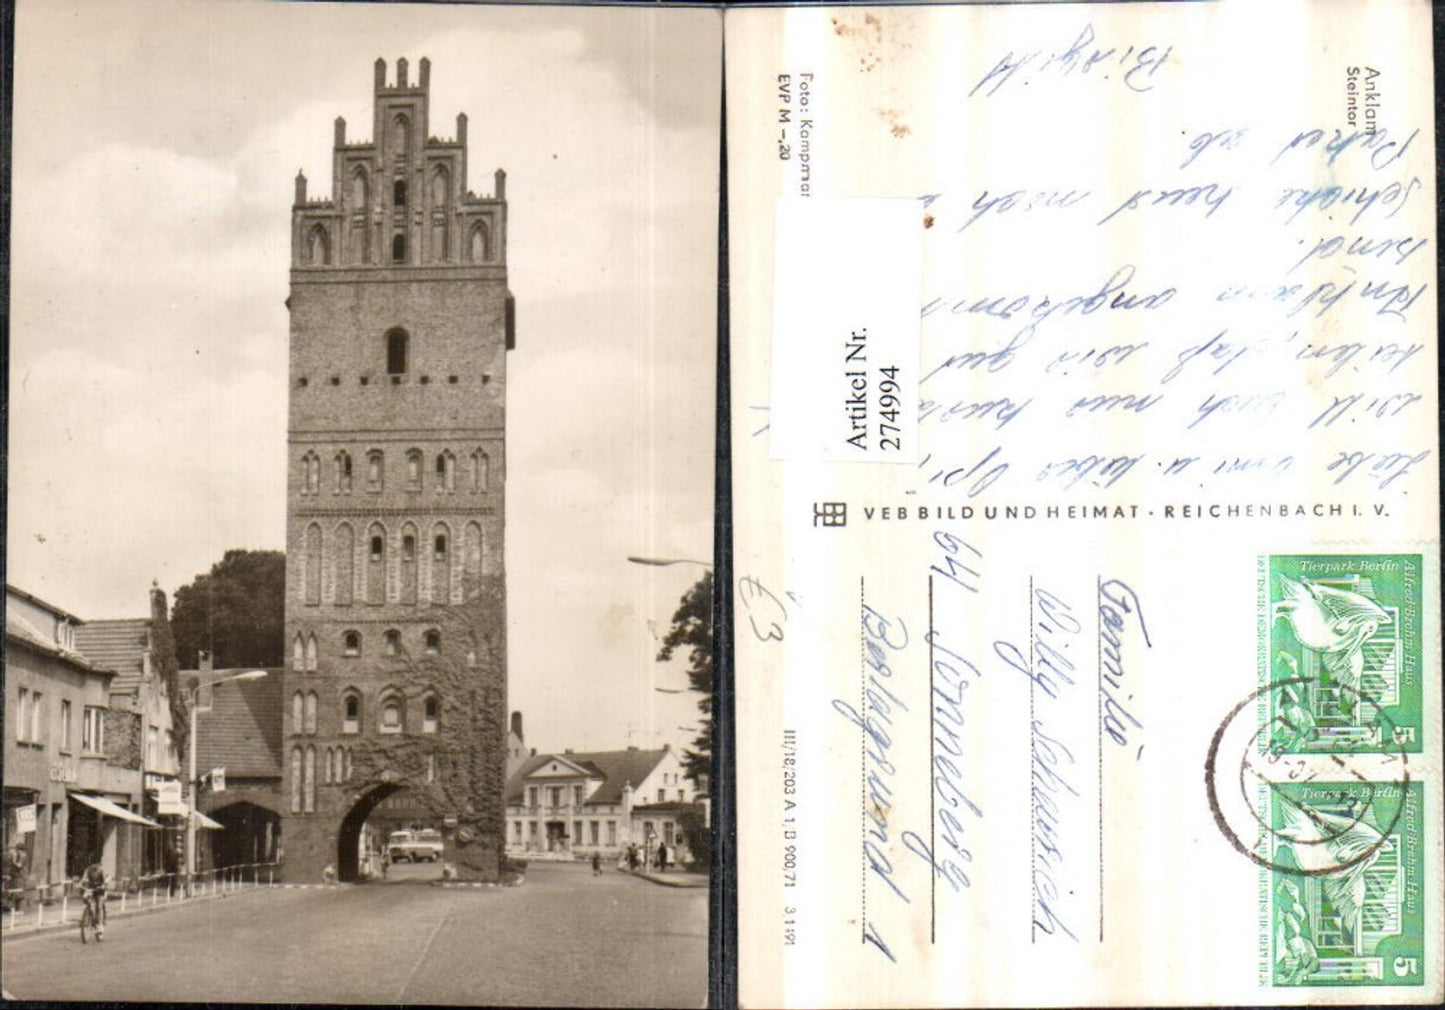 Anklam
Steintor
Liebe Omi u. lieber Opi
will Euch nur kurz
teilen, daß wir gut
Anklam angekomm
sind.
Schicke heut noch e
Paket ab
Birgitt
Foto: Kampman
EVP M -,20
Artikel Nr.
274994
VEB BILD UND HEIMAT · REICHENBACH I. V.
III/18/203 A 1 B 900/71 3,1191
£3
Familie
Willy Schaurich
64 Sonneberg
Berlagrund 1
Tierpark Berlin
Alfred-Brehm-Haus
5
Tierpark Berlin
Alfred-Brehm-Haus
5